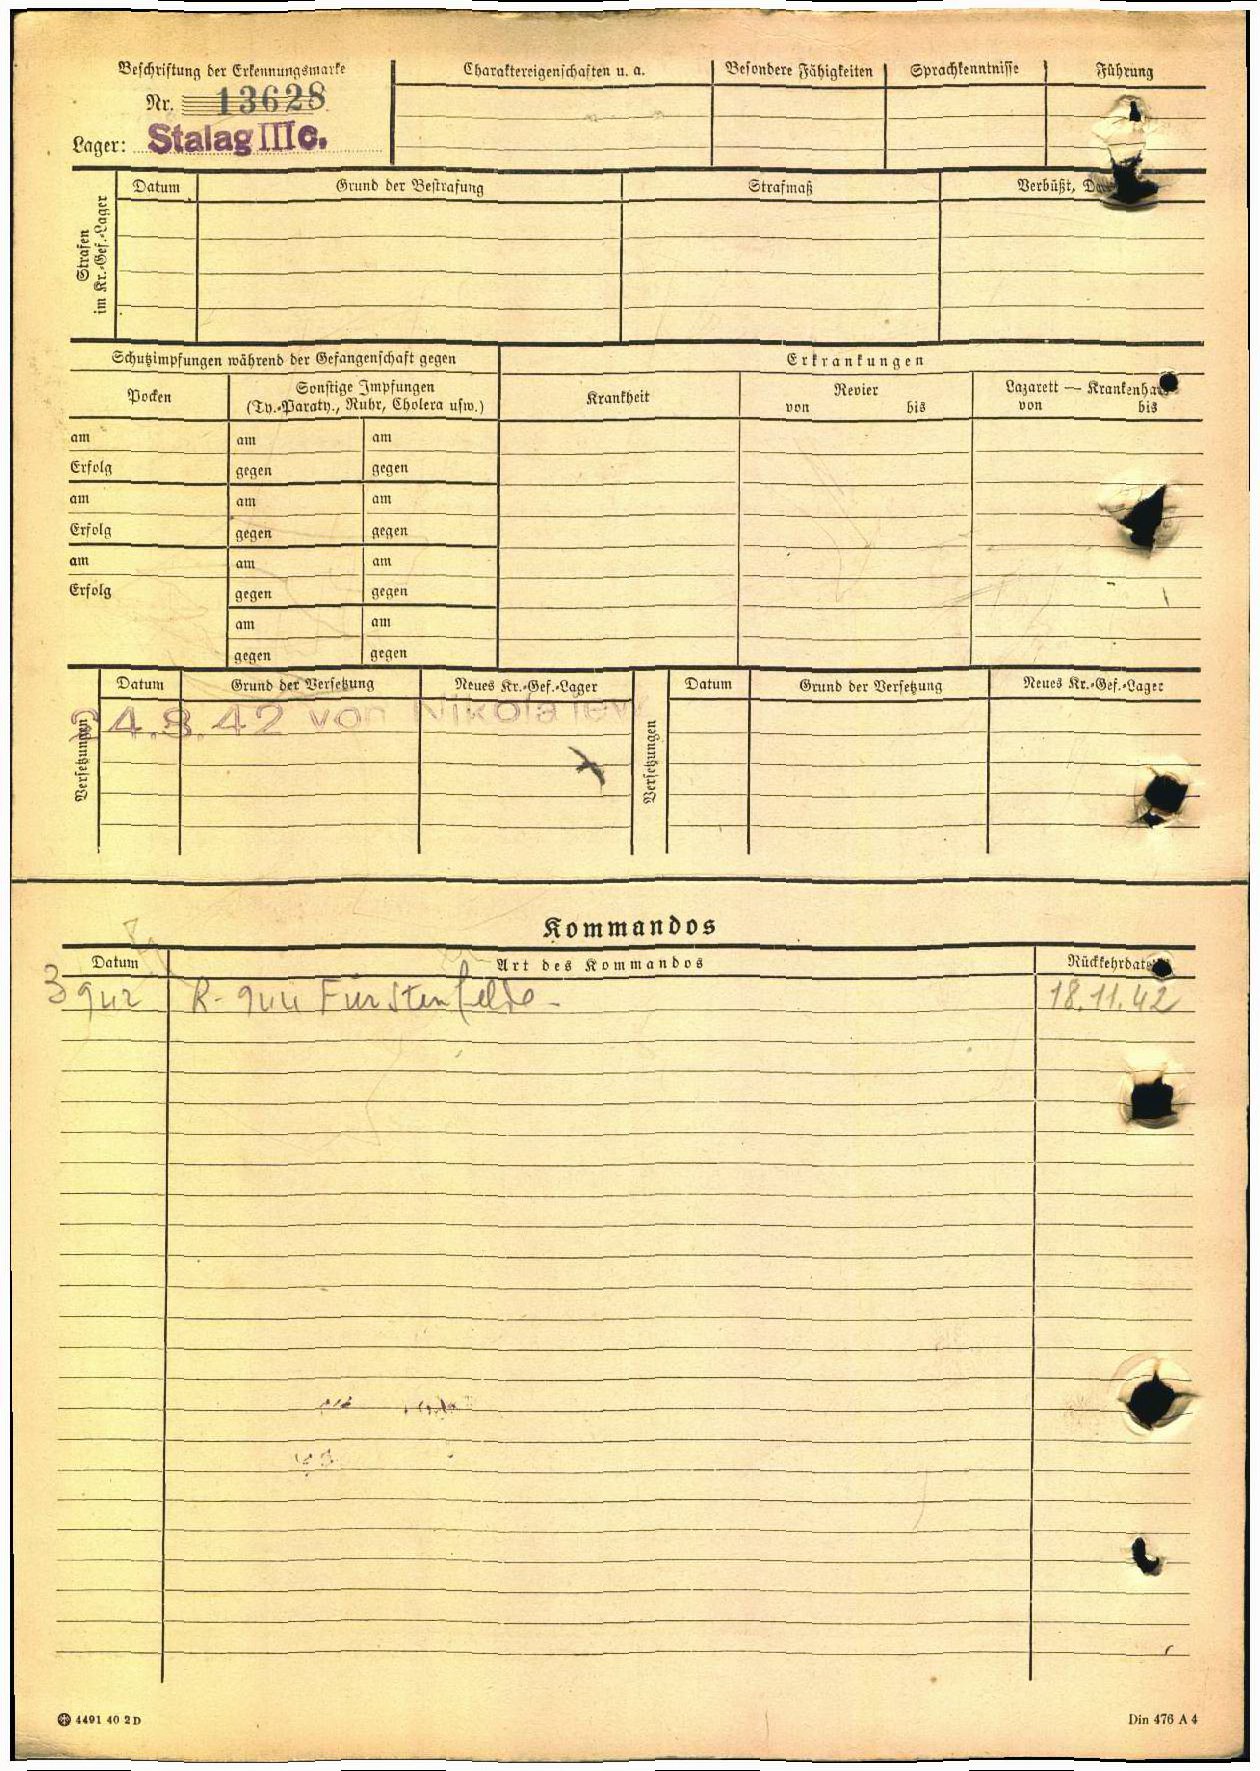 Beschriftung der Erkennungsmarke
Nr. 13628
Lager: Stalag III c.
Charaktereigenschaften u. a.
Besondere Fähigkeiten
Sprachkenntnisse
Führung
Strafen
im Kr.-Gef.-Lager
Datum
Grund der Bestrafung
Strafmaß
Verbüßt,
Schutzimpfungen während der Gefangenschaft gegen
Pocken
Sonstige Impfungen
(Ty.-Paraty., Ruhr, Cholera usw.)
am am am
Erfolg gegen gegen
am am am
Erfolg gegen gegen
am am am
Erfolg gegen gegen
am am
gegen gegen
Erkrankungen
Krankheit
Revier
von bis
Lazarett — Krankenhaus
von bis
Versetzungen
Datum
Grund der Versetzung
Neues Kr.-Gef.-Lager
24.8.42 von Nikolaiew
Versetzungen
Datum
Grund der Versetzung
Neues Kr.-Gef.-Lager
Kommandos
Datum
Art des Kommandos
Rückkehrdatum
3 9 42 R- 944 Fürstenfelde - 18.11.42
4491 40 2 D
Din 476 A 4